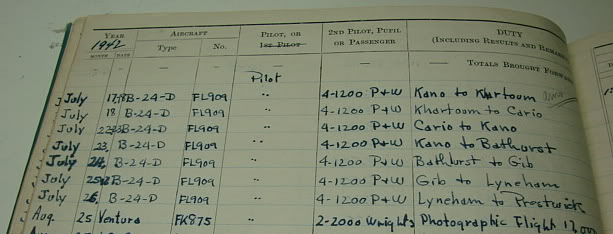 YEAR AIRCRAFT PILOT, OR 2ND PILOT, PUPIL DUTY
1942 Type No. 1ST PILOT OR PASSENGER (INCLUDING RESULTS AND REMARKS
MONTH DATE
— — — — TOTALS BROUGHT FORWARD
Pilot
July 17,18 B-24-D FL909 " 4-1200 P+W Kano to Khartoum
July 18 B-24-D FL909 " 4-1200 P+W Khartoum to Cario
July B-24-D FL909 " 4-1200 P+W Cario to Kano
July 23, B-24-D FL909 " 4-1200 P+W Kano to Bathurst
July 24, B-24-D FL909 " 4-1200 P+W Bathurst to Gib
July B-24-D FL909 " 4-1200 P+W Gib to Lyneham
July 26, B-24-D FL909 " 4-1200 P+W Lyneham to Prestwick
Aug. 25 Ventura FK875 " 2-2000 Wrights Photographic Flight